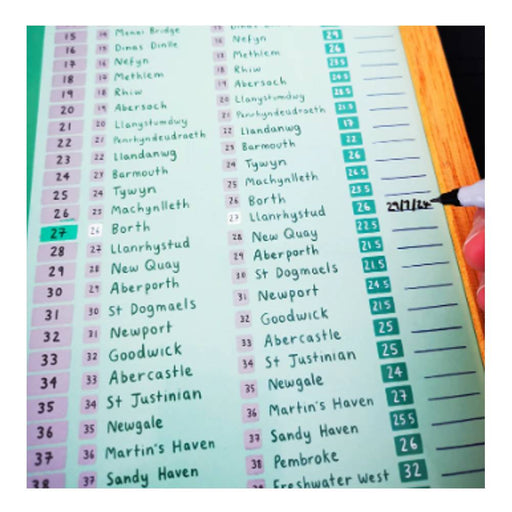 15 14 Menai Bridge 15 Dinas Dinlle
16 15 Dinas Dinlle 16 Nefyn 29
17 16 Nefyn 17 Methlem 26
18 17 Methlem 18 Rhiw 23.5
19 18 Rhiw 19 Abersoch 24.5
20 19 Abersoch 20 Llanystumdwy 26.5
21 20 Llanystumdwy 21 Penrhyndeudraeth 21.5
22 21 Penrhyndeudraeth 22 Llandanwg 17
23 22 Llandanwg 23 Barmouth 22
24 23 Barmouth 24 Tywyn 26
25 24 Tywyn 25 Machynlleth 26.5
26 25 Machynlleth 26 Borth 23.5
27 26 Borth 27 Llanrhystud 26 29/7/24
28 27 Llanrhystud 28 New Quay 22.5
29 28 New Quay 29 Aberporth 21.5
30 29 Aberporth 30 St Dogmaels 21.5
31 30 St Dogmaels 31 Newport 24.5
32 31 Newport 32 Goodwick 21.5
33 32 Goodwick 33 Abercastle 25
34 33 Abercastle 34 St Justinian 25
35 34 St Justinian 35 Newgale 24
36 35 Newgale 36 Martin's Haven 27
37 36 Martin's Haven 37 Sandy Haven 25.5
38 37 Sandy Haven 38 Pembroke 26
Freshwater West 32